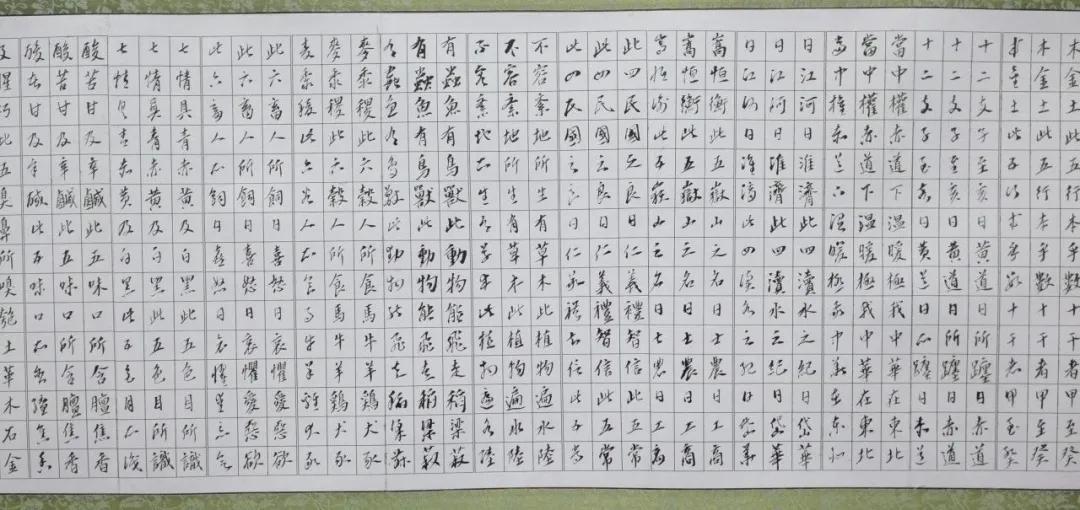 木金土此五行本乎數十干者甲至癸
木金土此五行本乎數十干者甲至癸
木金土此五行本乎數十干者甲至癸
十二支子至亥曰黃道日所躔曰赤道
十二支子至亥曰黃道日所躔曰赤道
十二支子至亥曰黃道日所躔曰赤道
當中權赤道下温暖極我中華在東北
當中權赤道下温暖極我中華在東北
當中權赤道下温暖極我中華在東北
曰江河曰淮濟此四瀆水之紀曰岱華
曰江河曰淮濟此四瀆水之紀曰岱華
曰江河曰淮濟此四瀆水之紀曰岱華
嵩恒衡此五嶽山之名曰士農曰工商
嵩恒衡此五嶽山之名曰士農曰工商
嵩恒衡此五嶽山之名曰士農曰工商
此四民國之良曰仁義禮智信此五常
此四民國之良曰仁義禮智信此五常
此四民國之良曰仁義禮智信此五常
不容紊地所生有草木此植物遍水陸
不容紊地所生有草木此植物遍水陸
不容紊地所生有草木此植物遍水陸
有蟲魚有鳥獸此動物能飛走稻粱菽
有蟲魚有鳥獸此動物能飛走稻粱菽
有蟲魚有鳥獸此動物能飛走稻粱菽
麥黍稷此六穀人所食馬牛羊鶏犬豕
麥黍稷此六穀人所食馬牛羊鶏犬豕
麥黍稷此六穀人所食馬牛羊鶏犬豕
此六畜人所飼曰喜怒曰哀懼愛惡欲
此六畜人所飼曰喜怒曰哀懼愛惡欲
此六畜人所飼曰喜怒曰哀懼愛惡欲
七情具青赤黃及白黑此五色目所識
七情具青赤黃及白黑此五色目所識
七情具青赤黃及白黑此五色目所識
酸苦甘及辛鹹此五味口所含膻焦香
酸苦甘及辛鹹此五味口所含膻焦香
酸苦甘及辛鹹此五味口所含膻焦香
及腥朽此五臭鼻所嗅匏土革木石金